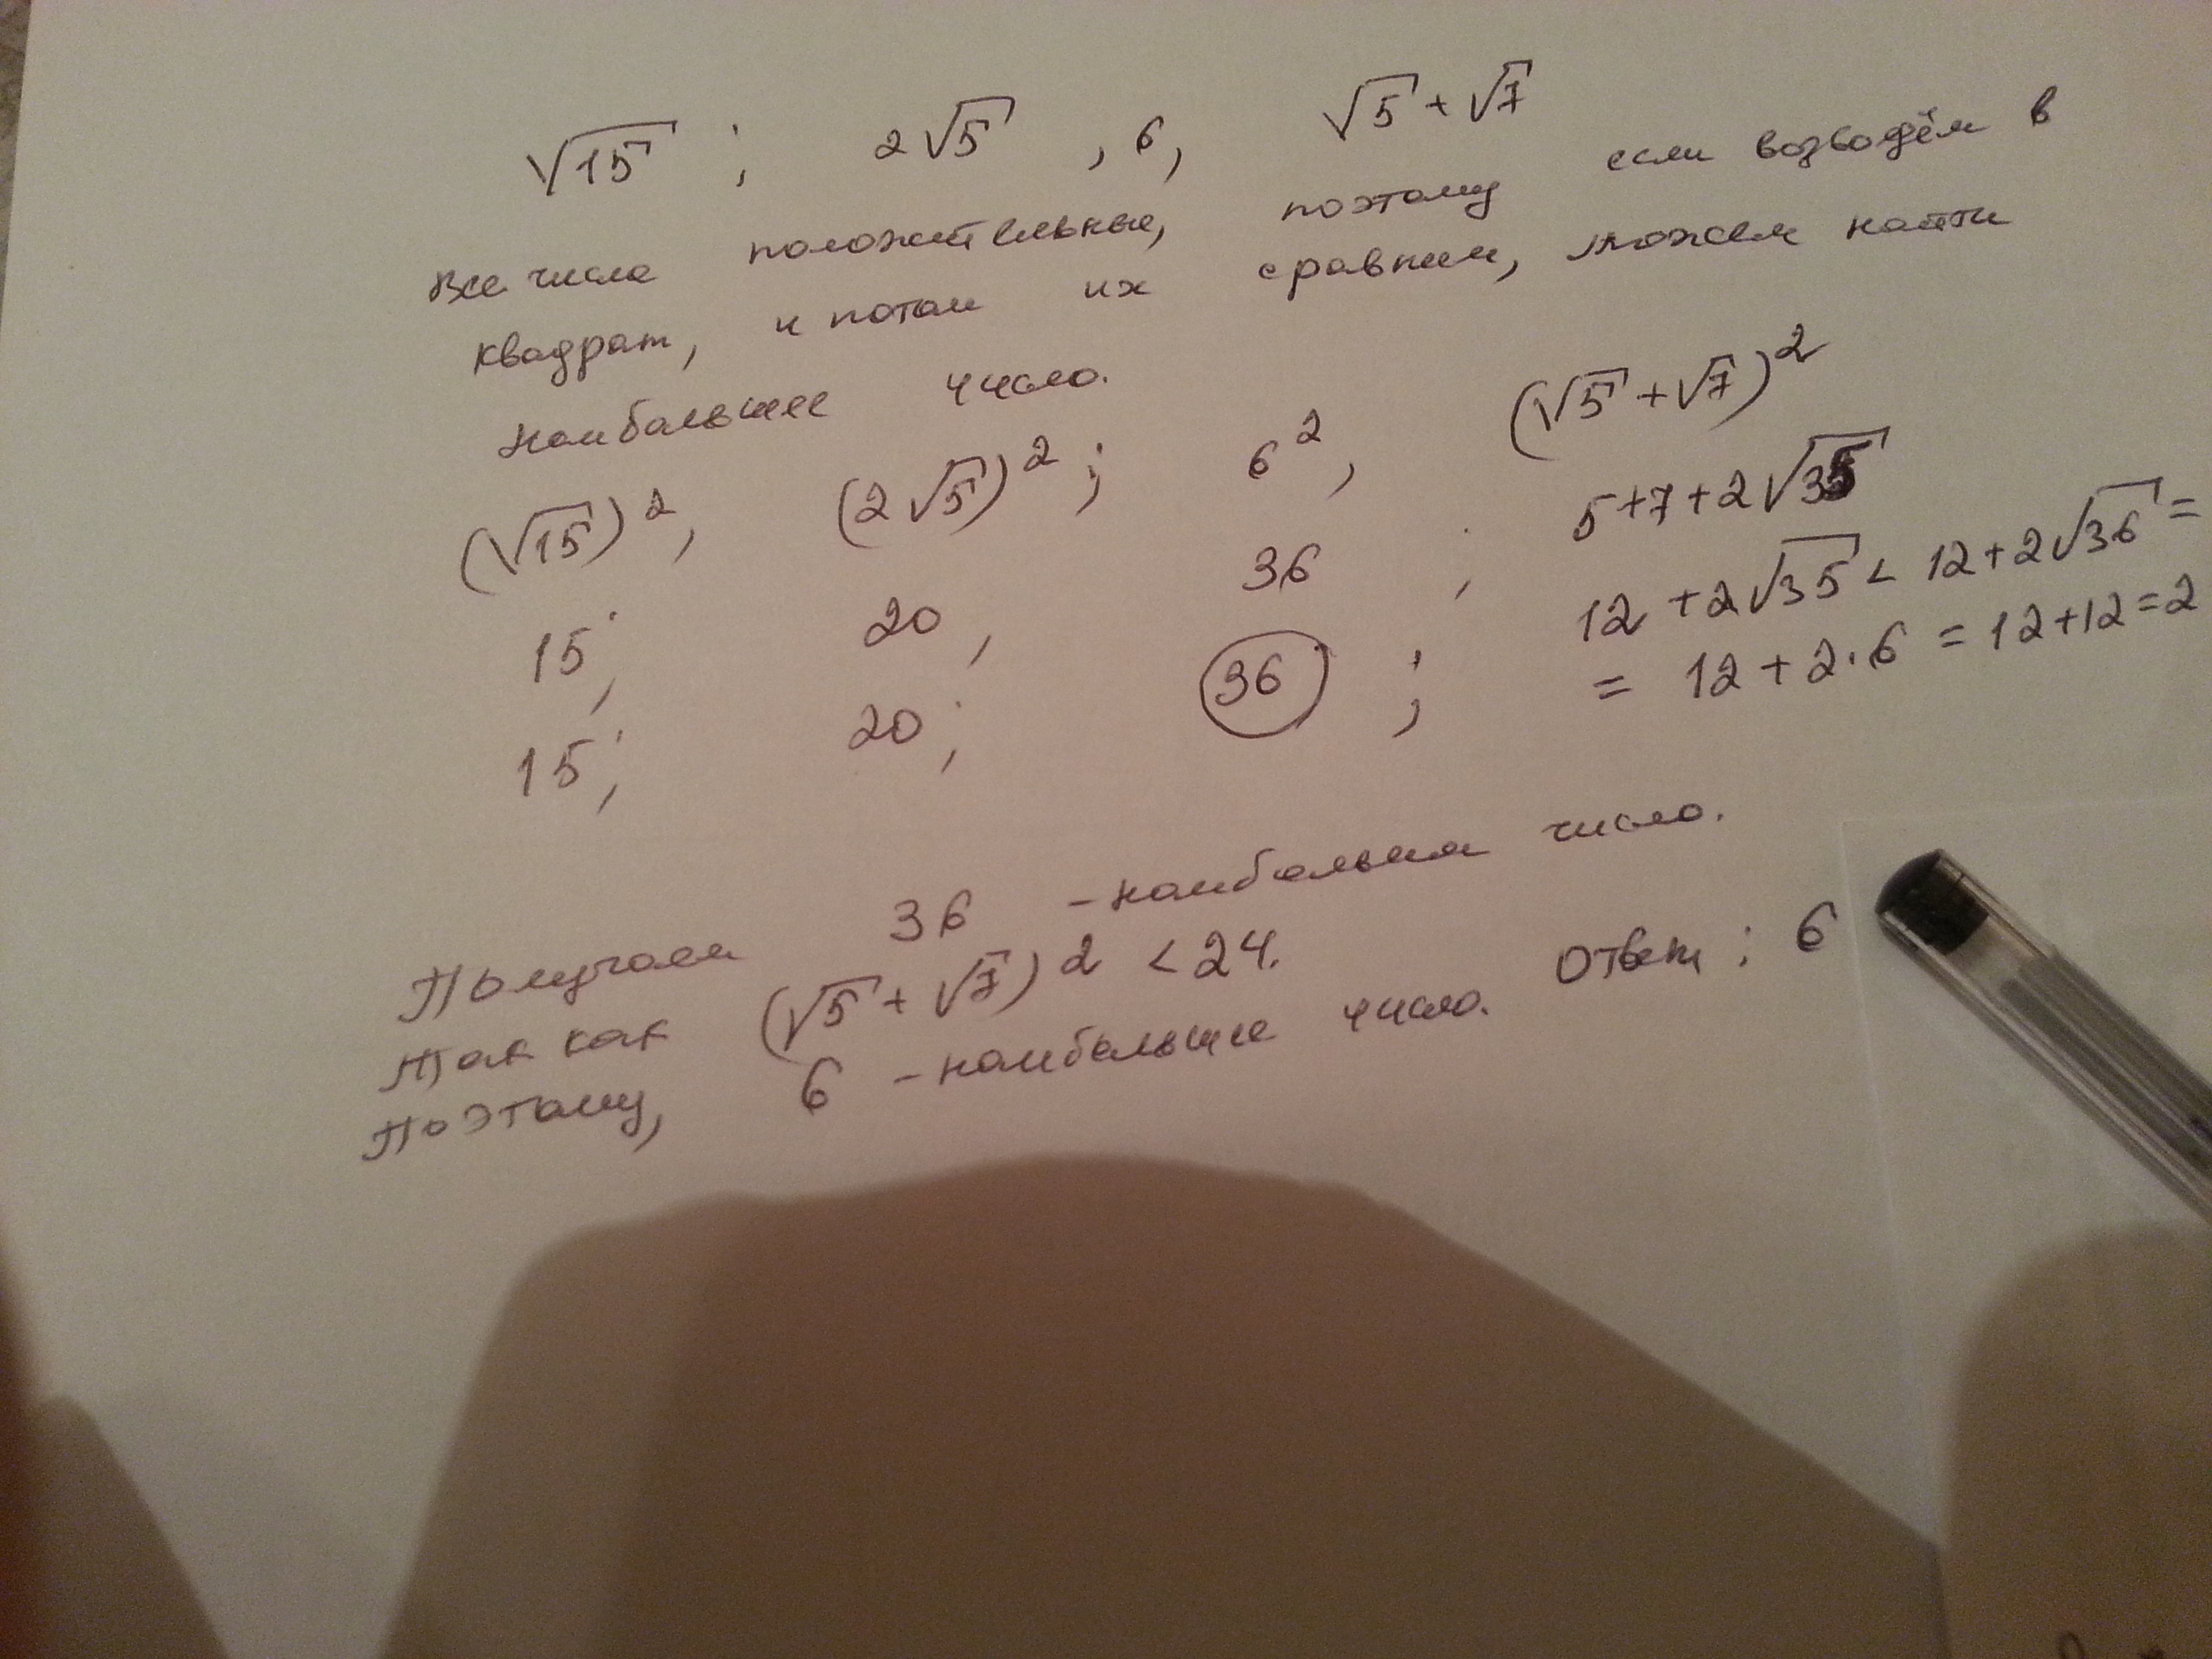 √15 ; 2√5 , 6, √5 + √7
Все числа положительные, поэтому если возводём в
квадрат, и потом их сравним, можем найти
наибольшее число.
(√15)², (2√5)² ; 6² , (√5 + √7)²
15; 20, 36 ; 5+7+2√35
15; 20; 36 ; 12 + 2√35 < 12 + 2√36 =
= 12 + 2·6 = 12+12=2
Получаем 36 - наибольшее число.
Так как (√5 + √7)² < 24.
Поэтому, 6 - наибольшее число. Ответ : 6